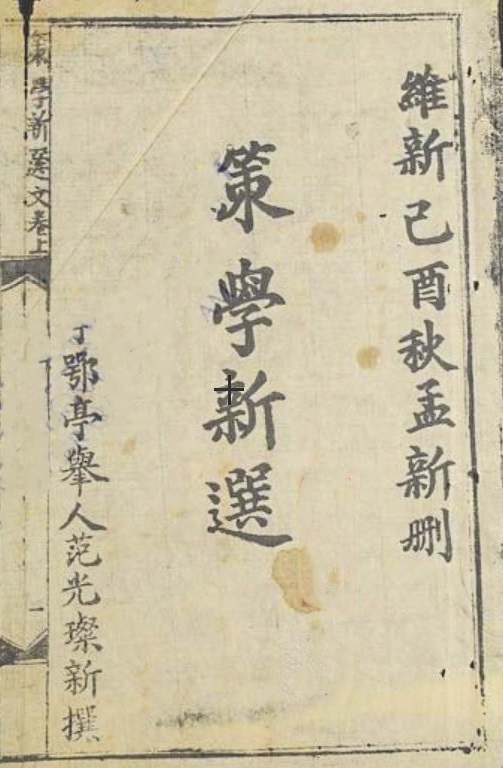 維新己酉秋孟新删
策學新選
丁鄂亭舉人范光璨新撰
策學新選文卷上
一